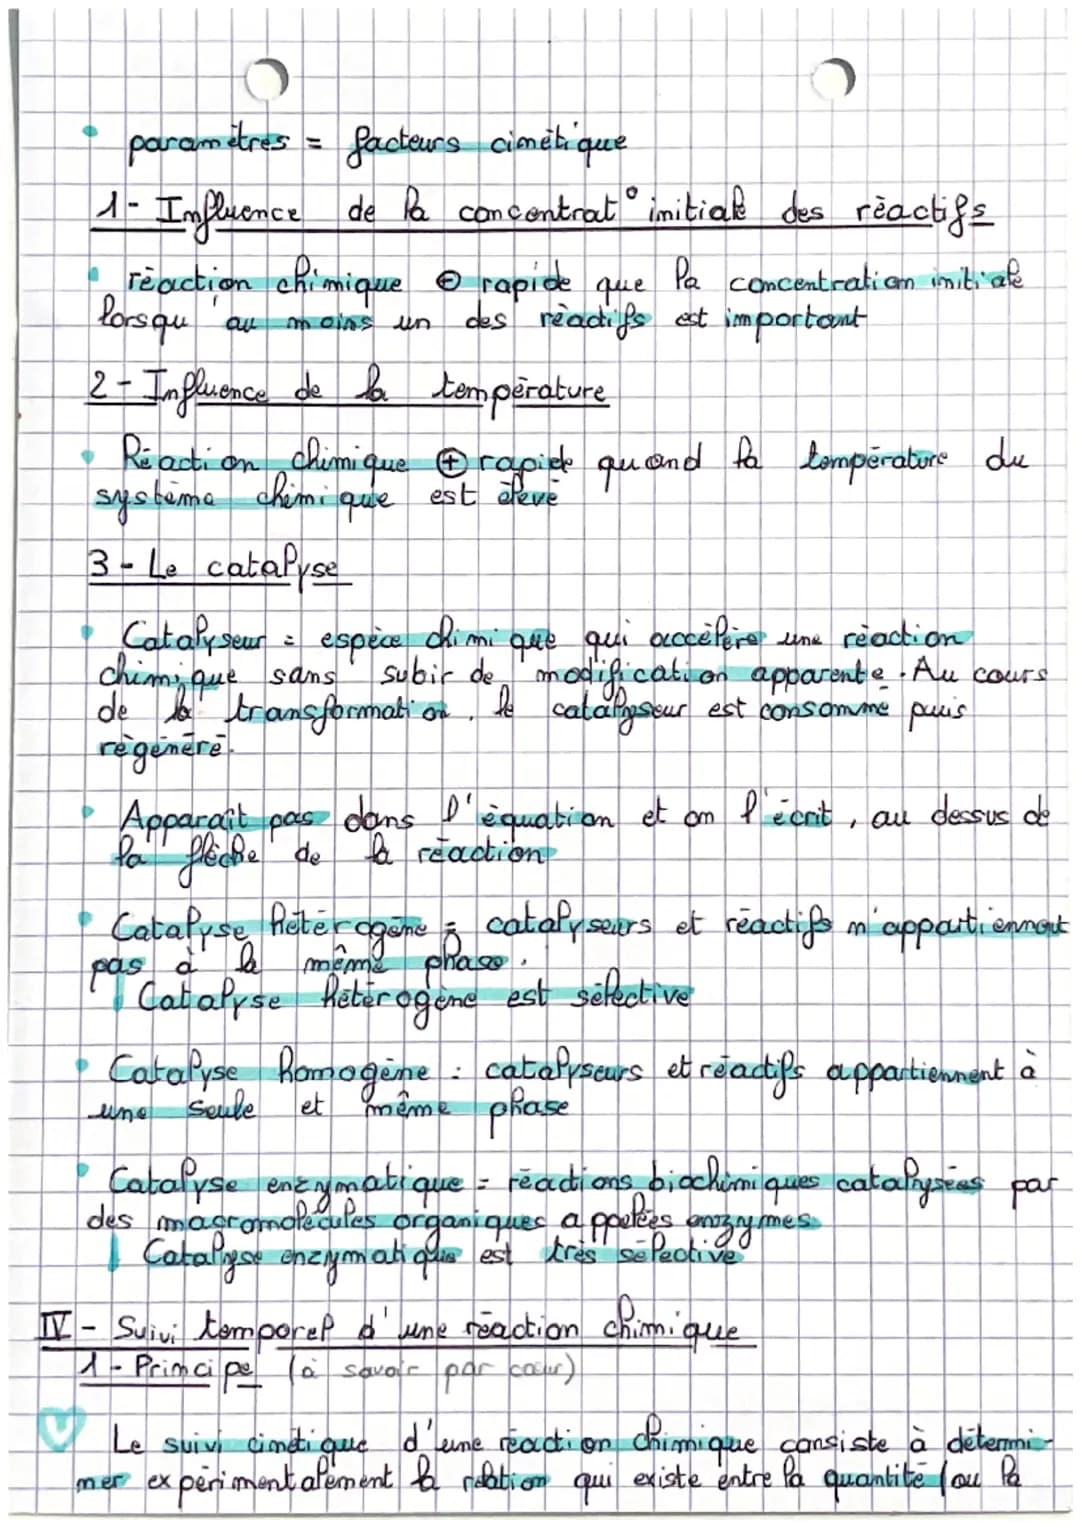 • paramètres = facteurs cinétique
1- Influence de la concentrat° initiale des réactifs
• réaction chimique ⊕ rapide que la concentration initiale
lorsqu'au moins un des réactifs est important
2- Influence de la température
• Réaction chimique ⊕ rapide quand la température du
système chimique est élevé
3- Le catalyse
• Catalyseur = espèce chimique qui accélère une réaction
chimique sans subir de modification apparente. Au cours
de la transformation, le catalyseur est consommé puis
régénéré.
• Apparaît pas dans l'équation et on l'écrit, au dessus de
la flèche de la réaction
• Catalyse hétérogène = catalyseurs et réactifs n'appartiennent
pas à la même phase.
Catalyse hétérogène est sélective
• Catalyse homogène : catalyseurs et réactifs appartiennent à
une seule et même phase
• Catalyse enzymatique = réactions biochimiques catalysées par
des magromolécules organiques appelées enzymes
Catalyse enzymatique est très sélective
IV - Suivi temporel d'une réaction chimique
1 - Principe (à savoir par cœur)
Le suivi cinétique d'une réaction chimique consiste à détermi-
ner expérimentalement la relation qui existe entre la quantité (ou la